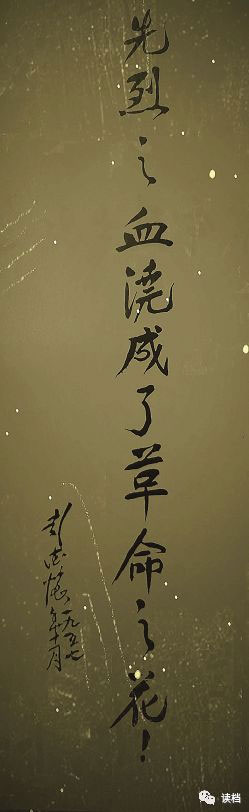 先烈之血浇成了革命之花！
彭德怀 一九五七年十月
读档